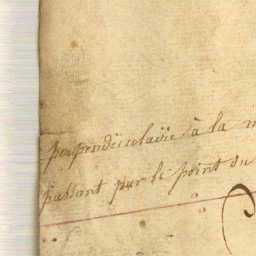 perpendiculaire à la m
passant par le point du